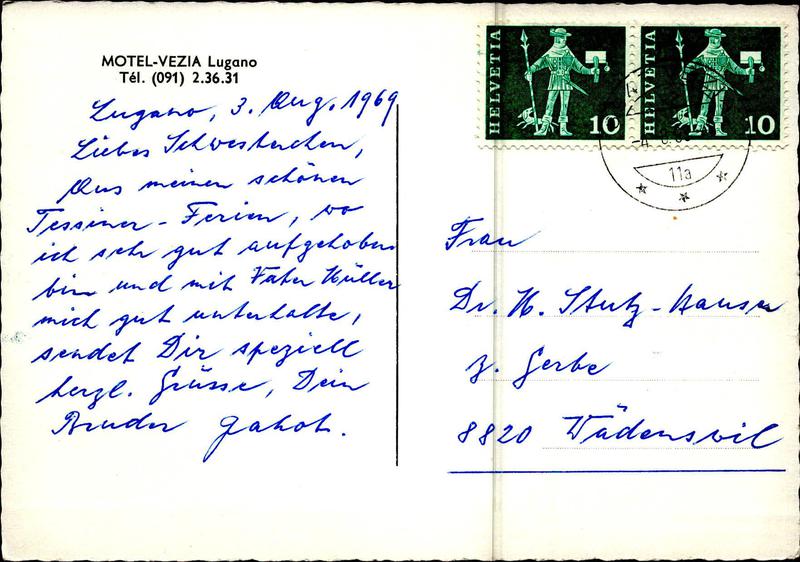 MOTEL-VEZIA Lugano
Tél. (091) 2.36.31
Lugano, 3. Aug. 1969
Liebes Schwesterchen,
Aus meinen schönen
Tessiner-Ferien, wo
ich sehr gut aufgehoben
bin und mit Vater Müller
mich gut unterhalte,
sendet Dir speziell
herzl. Grüsse, Dein
Bruder Jakob.
HELVETIA 10
HELVETIA 10
11a
Frau
Dr. H. Stutz-Hauser
z. Gerbe
8820 Wädenswil